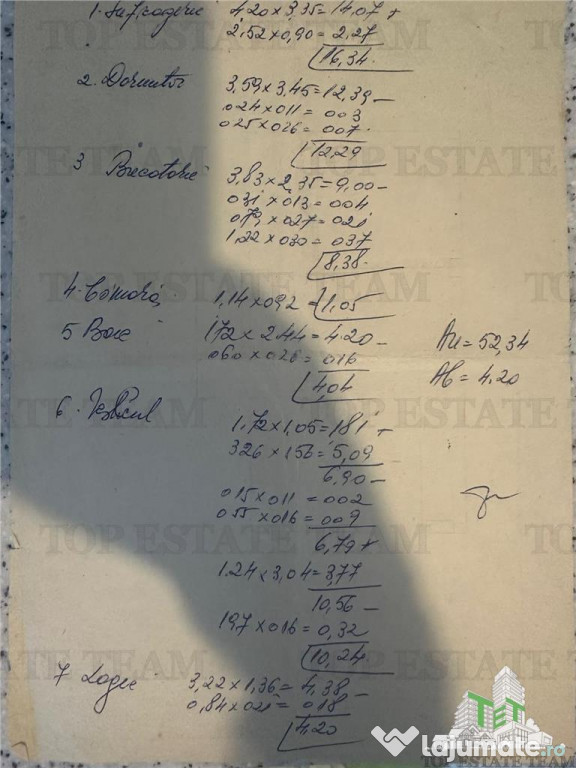 1. Sufragerie 4.20 x 3,35 = 14,07 +
2,52 x 0,90 = 2,27
16,34.
2. Dormitor 3,59 x 3,45 = 12,39 –
024 x 011 = 003
025 x 026 = 007.
12,29
3 Bucatarie 3,83 x 2,35 = 9,00 –
031 x 013 = 004
079, x 027 = 021
1.22 x 030 = 037
8,38.
4. Cămară 1,14 x 092 = 1,05
5 Baie 172 x 2.44 = 4.20 –
060 x 026 = 016
4,04
Au = 52,34
Ab = 4.20
6. Vestibul 1.72 x 1,05 = 181 +
326 x 156 = 5,09
6,90 –
015 x 011 = 002
055 x 016 = 009
6,79 +
1.24 x 3,04 = 3,77
10,56 –
197 x 016 = 0,32
10,24
7 Logie 3,22 x 1,36 = 4,38 –
0,84 x 021 = 018
4.20
TOP ESTATE TEAM
TET
TOP ESTATE TEAM
Lajumate.ro